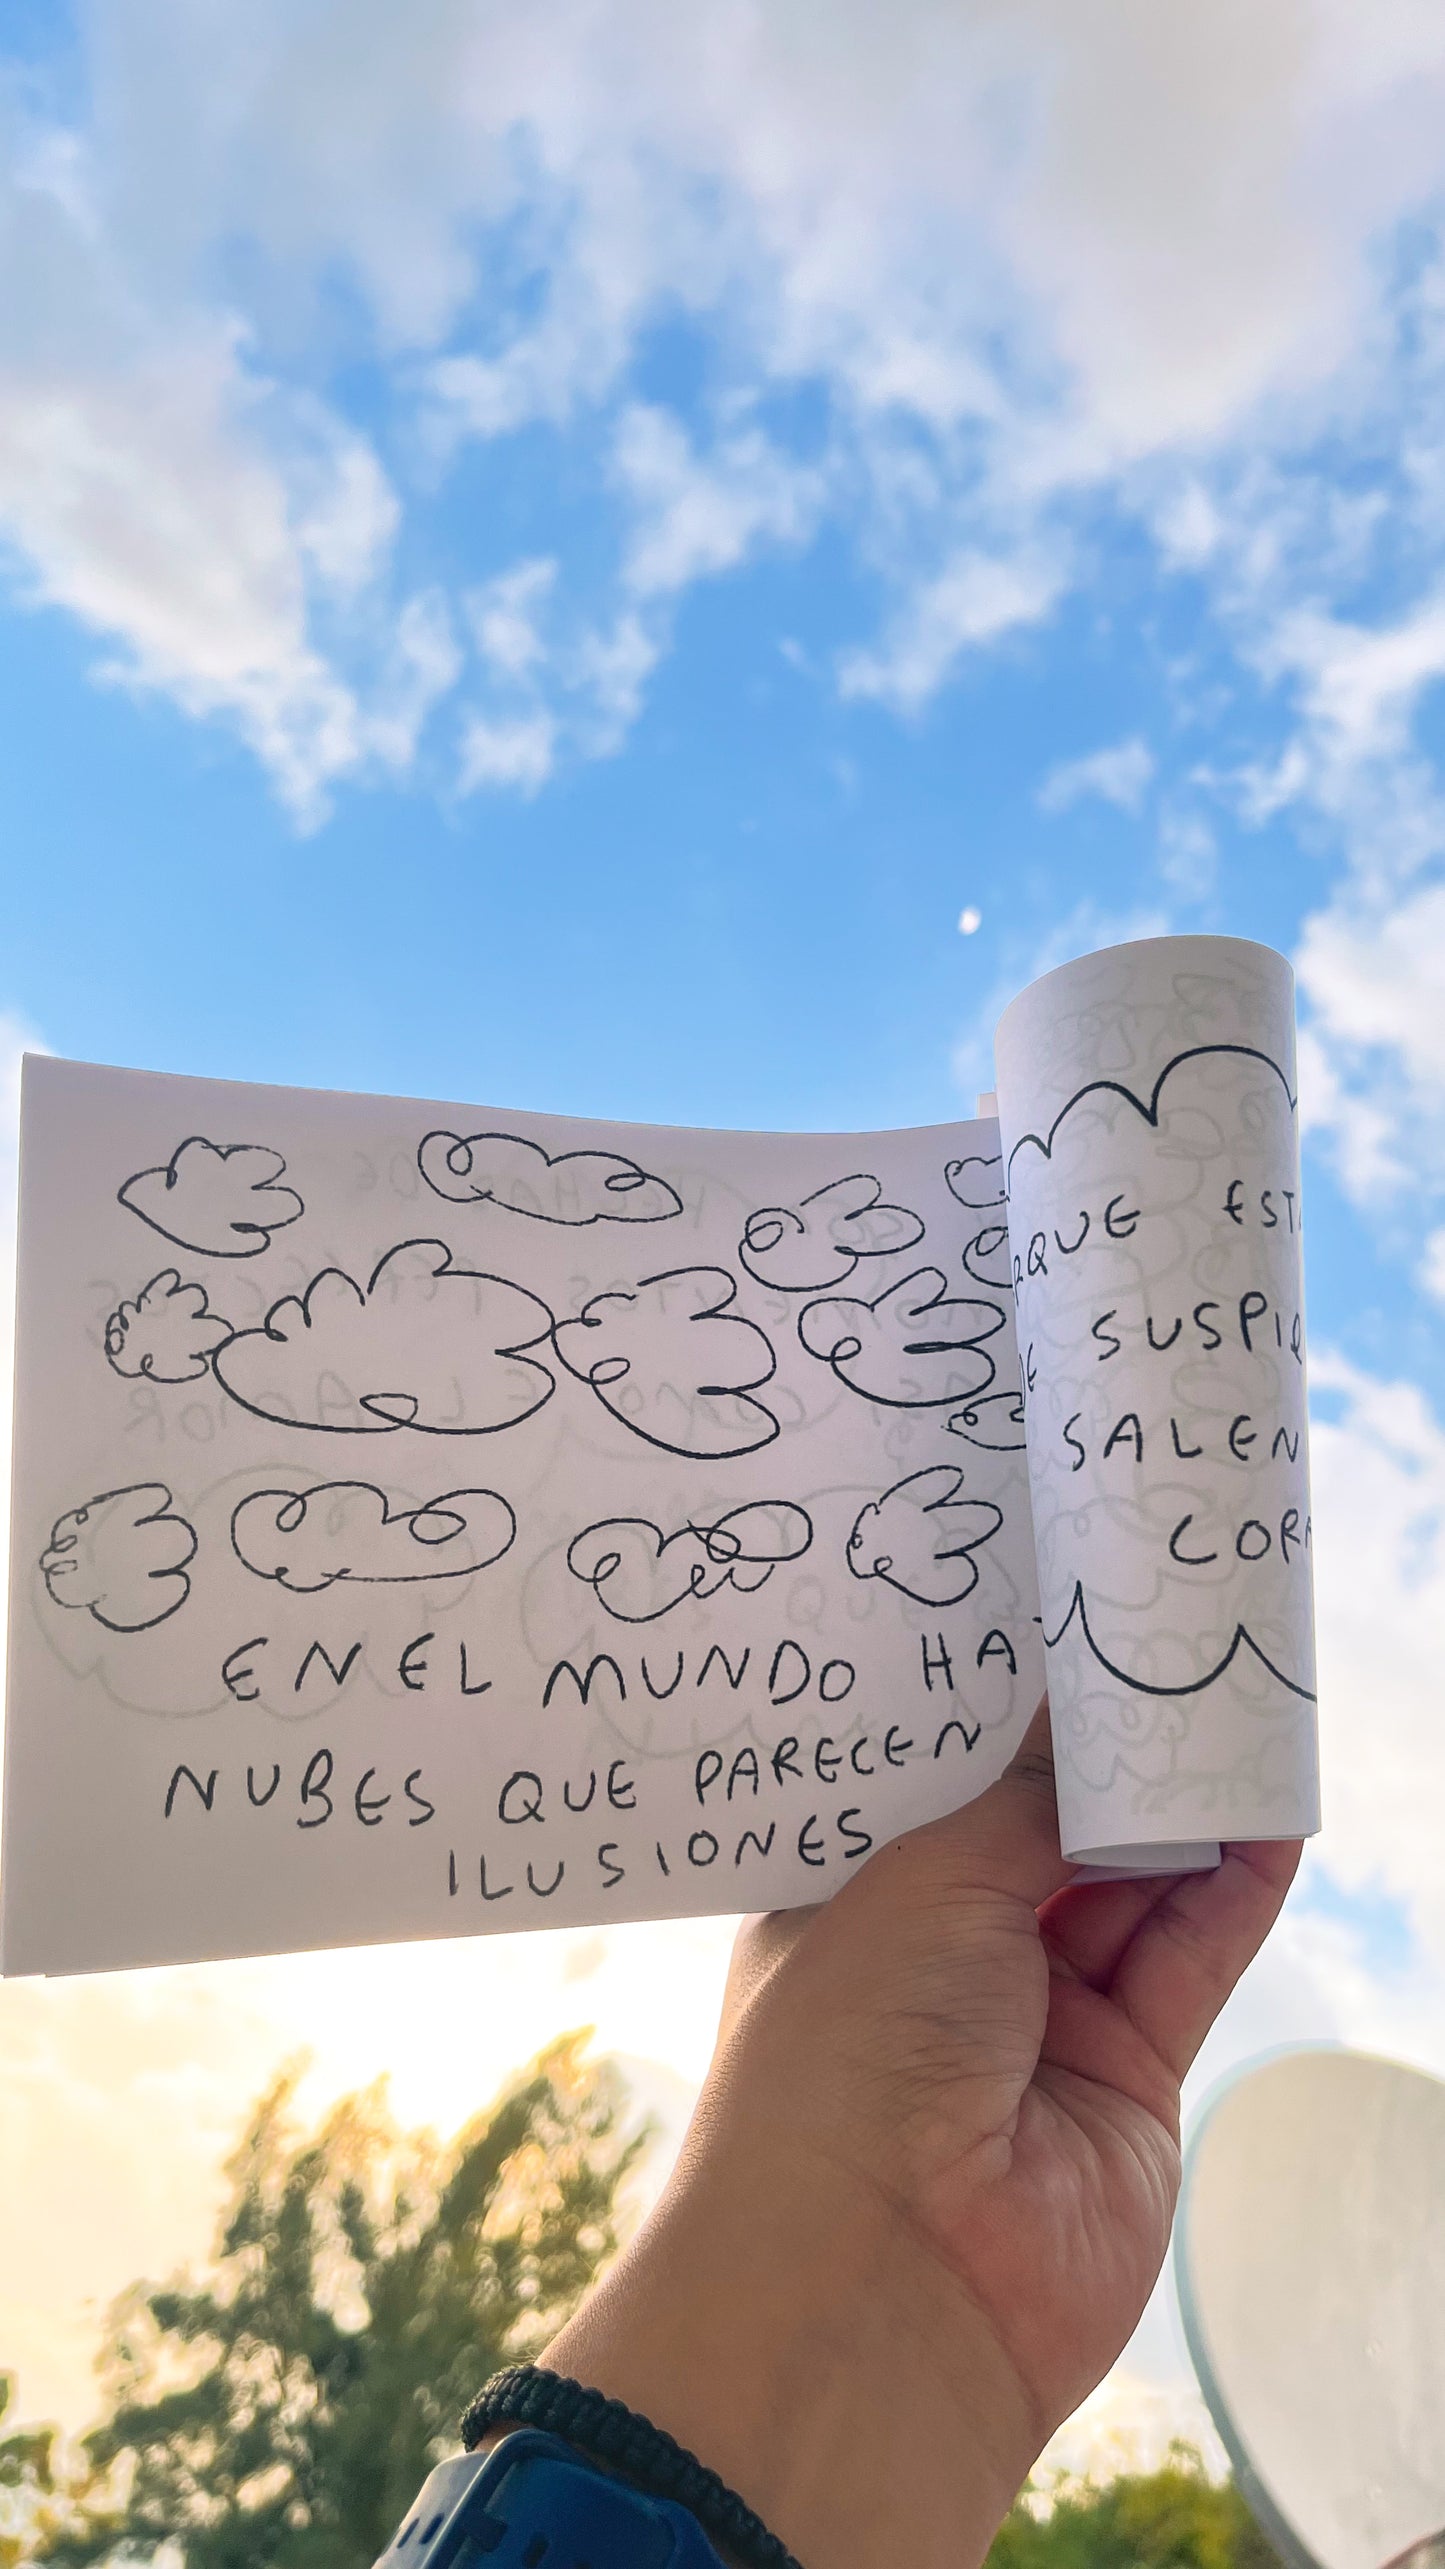 EN EL MUNDO HA
NUBES QUE PARECEN
ILUSIONES
RQUE EST
DE SUSPIR
SALEN
CORA